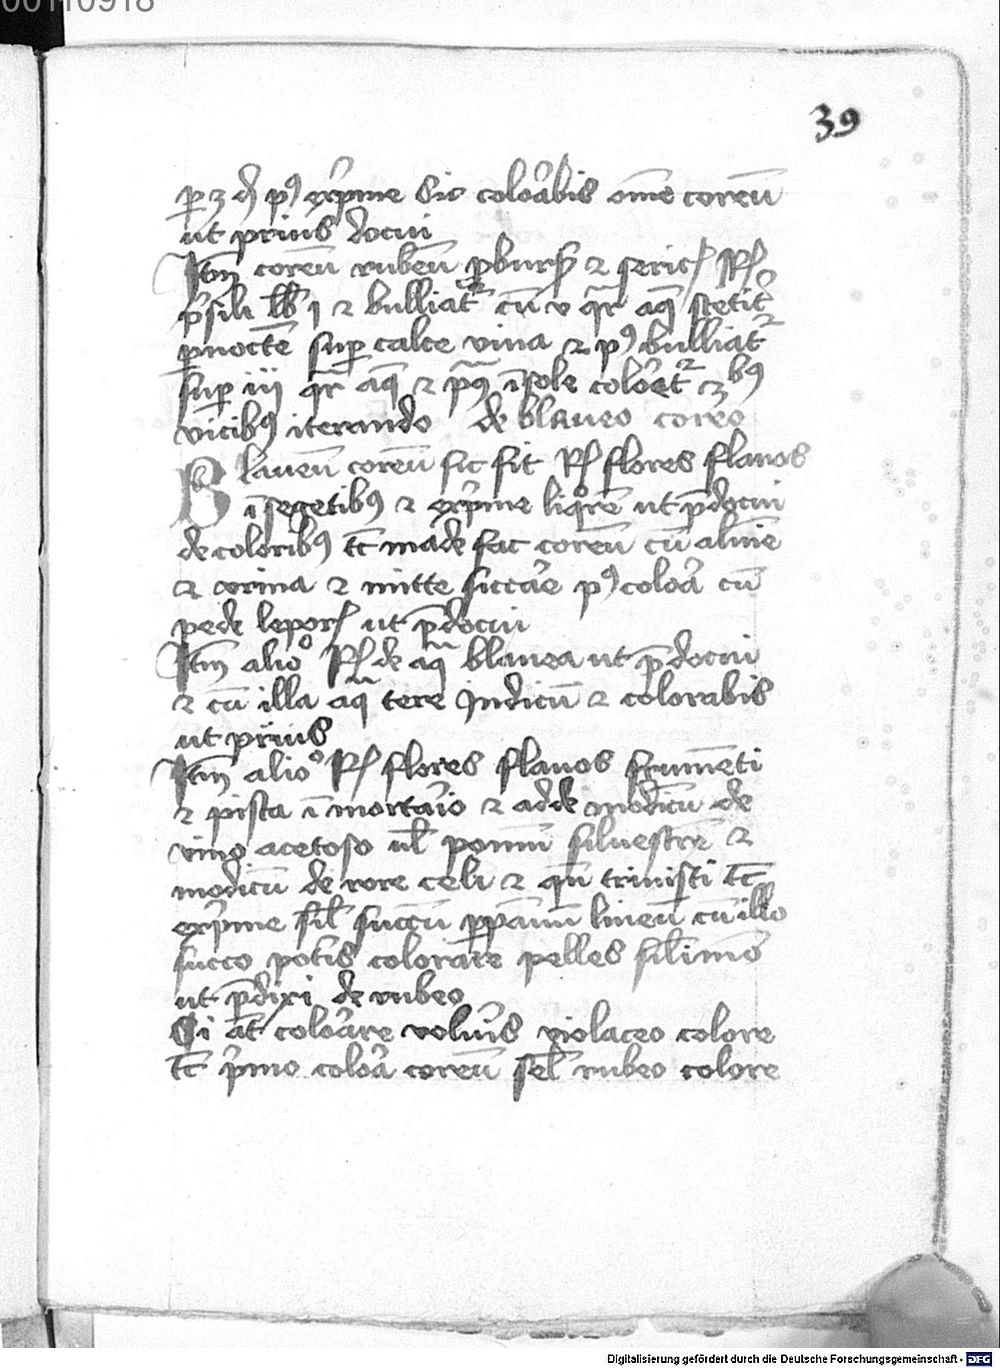 00110918
39
ꝑ 3 dʼ pꝰ exp̕me Sic coloͣbis om̄e coreū
ut prius docui
Itm̄ coreū rubeū ꝓ bursꝭ ⁊ sericꝭ Rꝭ
p̕sili lb̄ 1 ⁊ bulliat᷑ cū v qr̄ aq̄ stetit
ꝑnoctē sup̱ calce viua ⁊ pꝰ bulliat᷑
sup̱ iij qr̄ aq̄ ī sole coloret᷑ ⁊ 3bꝰ
vicibꝰ iterando de blaueo coreo
Blaueū coreū sic fit Rꝭ flores flauos
ī segetibꝰ ⁊ exp̕me liq̊rē ut p̄docui
de coloribꝰ tc̄ madefac coreū cū alūīe
⁊ vrina ⁊ mitte siccāe pꝰ coloͣ cū
pede leporꝭ ut p̄docui
Itm̄ alioͦ Rꝭ de aqͣ blauea ut p̄docui
⁊ cū illa aqͣ tere Indicū ⁊ colorabis
ut prius
Itm̄ alioͦ Rꝭ flores flauos frumēti
⁊ pista ī mortaͥo ⁊ adde modicū de
vino acetoso ul̄ pomū siluestre ⁊
modicū de rore celi ⁊ qn̄ triuisti tc̄
exp̕me sil̄ succū ꝑ pānū lineū cū illo
succo pot̕is colorare pelles sil̄imō
ut p̄dixi de rubeo
Si aūt coloͣre volu̕is violaceo colore
tc̄ p̕mo coloͣ coreū sel̄ rubeo colore
Digitalisierung gefördert durch die Deutsche Forschungsgemeinschaft - DFG